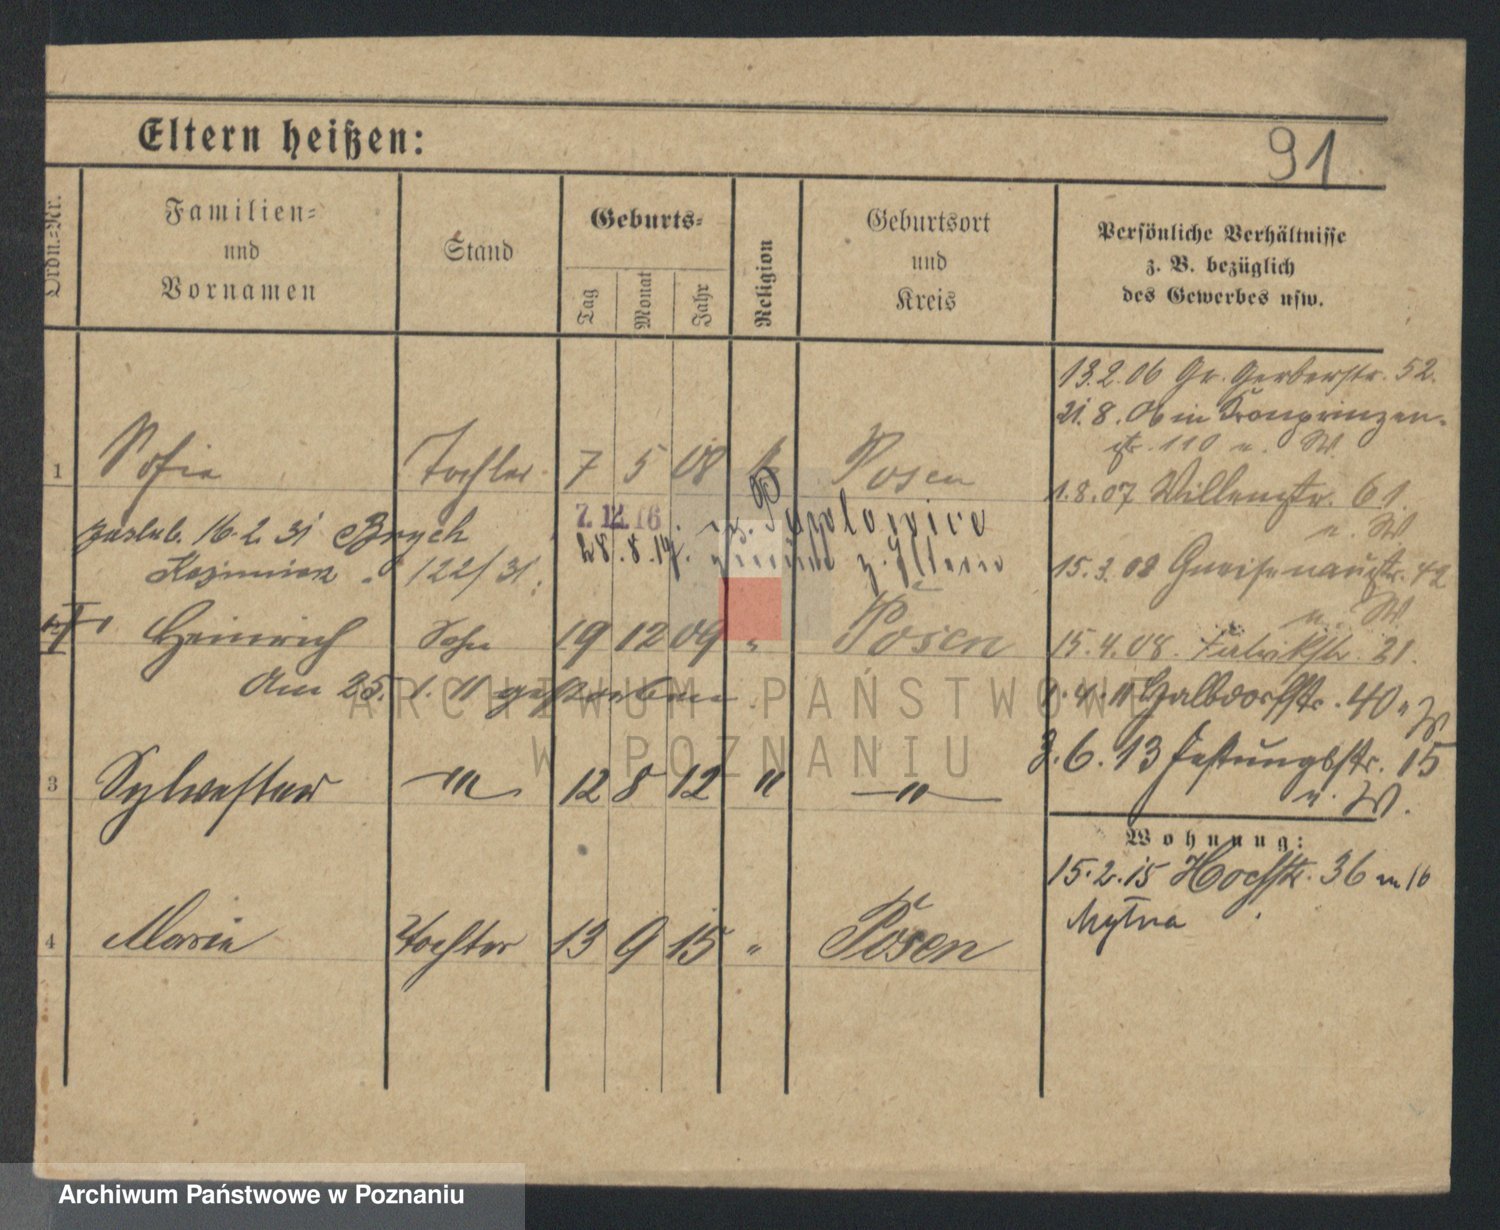 Eltern heißen:
91
Ordn.-Nr.
Familien-
und
Vornamen
Stand
Geburts-
Tag
Monat
Jahr
Religion
Geburtsort
und
Kreis
Persönliche Verhältnisse
z. B. bezüglich
des Gewerbes usw.
13.2.06 Gr. Gerberstr. 52.
21.8.06 in Kronprinzen-
str. 110 u. W.
1 Sofie Tochter 7 5 08 k Posen
1.8.07 61.
u. W
zaślub. 16.2.31 Brych
7. 12. 16
28.8.19. z. Eltern
Kazimierz 122/31.
15.3.08 Gneisenaustr. 42
u. W
Heinrich Sohn 19 12 09 " Posen
15.4.08. Fabrikstr. 21.
Am 25. 1. 11 gestorben.
1.4.11 Halbdorfstr. 40 u W
3.6.13 Festungsstr. 15
u. W.
3 Sylvester " 12 8 12 " "
Wohnung:
15.2.15 Hochstr. 36 m 16
Mylna
4 Marie Tochter 13 9 15 " Posen
ARCHIWUM PAŃSTWOWE
W POZNANIU
Archiwum Państwowe w Poznaniu